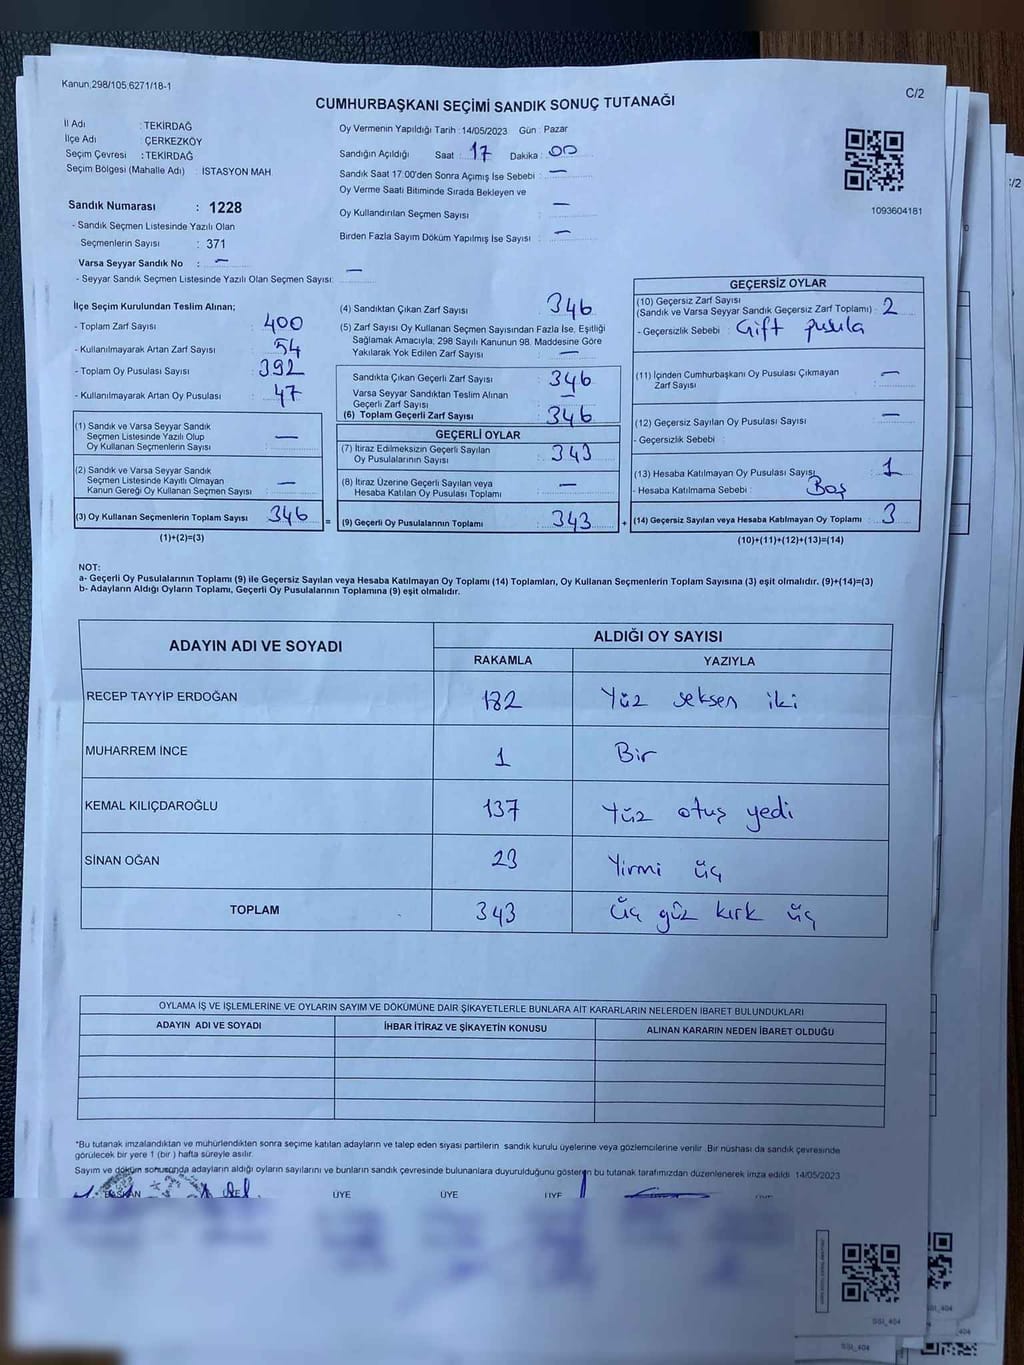 Kanun,298/105,6271/18-1
C/2
CUMHURBAŞKANI SEÇİMİ SANDIK SONUÇ TUTANAĞI
İl Adı : TEKİRDAĞ
İlçe Adı : ÇERKEZKÖY
Seçim Çevresi : TEKİRDAĞ
Seçim Bölgesi (Mahalle Adı) : İSTASYON MAH
Sandık Numarası : 1228
- Sandık Seçmen Listesinde Yazılı Olan
Seçmenlerin Sayısı : 371
Varsa Seyyar Sandık No : —
- Seyyar Sandık Seçmen Listesinde Yazılı Olan Seçmen Sayısı: —
Oy Vermenin Yapıldığı Tarih : 14/05/2023 Gün : Pazar
Sandığın Açıldığı Saat : 17 Dakika : 00
Sandık Saat 17:00'den Sonra Açımış İse Sebebi : —
Oy Verme Saati Bitiminde Sırada Bekleyen ve
Oy Kullandırılan Seçmen Sayısı : —
Birden Fazla Sayım Döküm Yapılmış İse Sayısı : —
1093604181
İlçe Seçim Kurulundan Teslim Alınan;
- Toplam Zarf Sayısı : 400
- Kullanılmayarak Artan Zarf Sayısı : 54
- Toplam Oy Pusulası Sayısı : 392
- Kullanılmayarak Artan Oy Pusulası : 47
(1) Sandık ve Varsa Seyyar Sandık
Seçmen Listesinde Yazılı Olup
Oy Kullanan Seçmenlerin Sayısı : —
(2) Sandık ve Varsa Seyyar Sandık
Seçmen Listesinde Kayıtlı Olmayan
Kanun Gereği Oy Kullanan Seçmen Sayısı : —
(3) Oy Kullanan Seçmenlerin Toplam Sayısı : 346 =
(1)+(2)=(3)
(4) Sandıktan Çıkan Zarf Sayısı : 346
(5) Zarf Sayısı Oy Kullanan Seçmen Sayısından Fazla İse, Eşitliği
Sağlamak Amacıyla, 298 Sayılı Kanunun 98. Maddesine Göre
Yakılarak Yok Edilen Zarf Sayısı : —
Sandıkta Çıkan Geçerli Zarf Sayısı : 346
Varsa Seyyar Sandıktan Teslim Alınan
Geçerli Zarf Sayısı : —
(6) Toplam Geçerli Zarf Sayısı : 346
GEÇERLİ OYLAR
(7) İtiraz Edilmeksizin Geçerli Sayılan
Oy Pusulalarının Sayısı : 343
(8) İtiraz Üzerine Geçerli Sayılan veya
Hesaba Katılan Oy Pusulası Toplamı : —
(9) Geçerli Oy Pusulalarının Toplamı : 343 +
GEÇERSİZ OYLAR
(10) Geçersiz Zarf Sayısı
(Sandık ve Varsa Seyyar Sandık Geçersiz Zarf Toplamı) : 2
- Geçersizlik Sebebi : Çift pusula
(11) İçinden Cumhurbaşkanı Oy Pusulası Çıkmayan
Zarf Sayısı : —
(12) Geçersiz Sayılan Oy Pusulası Sayısı : —
- Geçersizlik Sebebi :
(13) Hesaba Katılmayan Oy Pusulası Sayısı : 1
- Hesaba Katılmama Sebebi : Boş
(14) Geçersiz Sayılan veya Hesaba Katılmayan Oy Toplamı : 3
(10)+(11)+(12)+(13)=(14)
NOT:
a- Geçerli Oy Pusulalarının Toplamı (9) ile Geçersiz Sayılan veya Hesaba Katılmayan Oy Toplamı (14) Toplamları, Oy Kullanan Seçmenlerin Toplam Sayısına (3) eşit olmalıdır. (9)+(14)=(3)
b- Adayların Aldığı Oyların Toplamı, Geçerli Oy Pusulalarının Toplamına (9) eşit olmalıdır.
ADAYIN ADI VE SOYADI ALDIĞI OY SAYISI
RAKAMLA YAZIYLA
RECEP TAYYİP ERDOĞAN 182 Yüz seksen iki
MUHARREM İNCE 1 Bir
KEMAL KILIÇDAROĞLU 137 Yüz otuz yedi
SİNAN OĞAN 23 Yirmi üç
TOPLAM 343 üç yüz kırk üç
OYLAMA İŞ VE İŞLEMLERİNE VE OYLARIN SAYIM VE DÖKÜMÜNE DAİR ŞİKAYETLERLE BUNLARA AİT KARARLARIN NELERDEN İBARET BULUNDUKLARI
ADAYIN ADI VE SOYADI İHBAR İTİRAZ VE ŞİKAYETİN KONUSU ALINAN KARARIN NEDEN İBARET OLDUĞU
*Bu tutanak imzalandıktan ve mühürlendikten sonra seçime katılan adayların ve talep eden siyasi partilerin sandık kurulu üyelerine veya gözlemcilerine verilir .Bir nüshası da sandık çevresinde
görülecek bir yere 1 (bir ) hafta süreyle asılır.
Sayım ve döküm sonusunda adayların aldığı oyların sayılarını ve bunların sandık çevresinde bulunanlara duyurulduğunu gösteren bu tutanak tarafımızdan düzenlenerek imza edildi 14/05/2023
BAŞKAN ÜYE ÜYE ÜYE
SSI_404
SSI_404